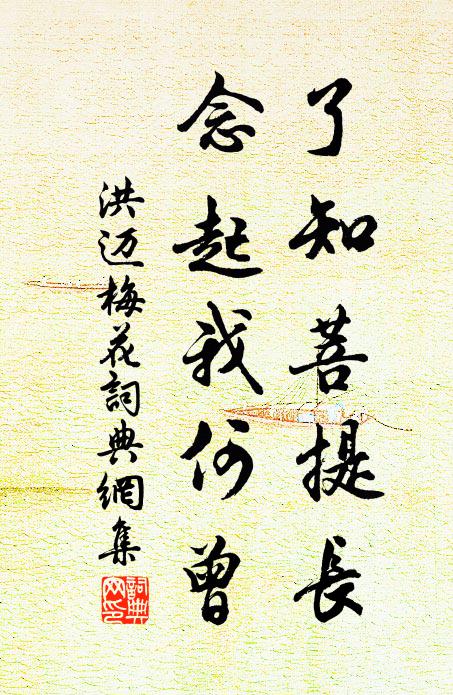 了知菩提長
念起我何曾
洪迈梅花詞典網集
詞典网印